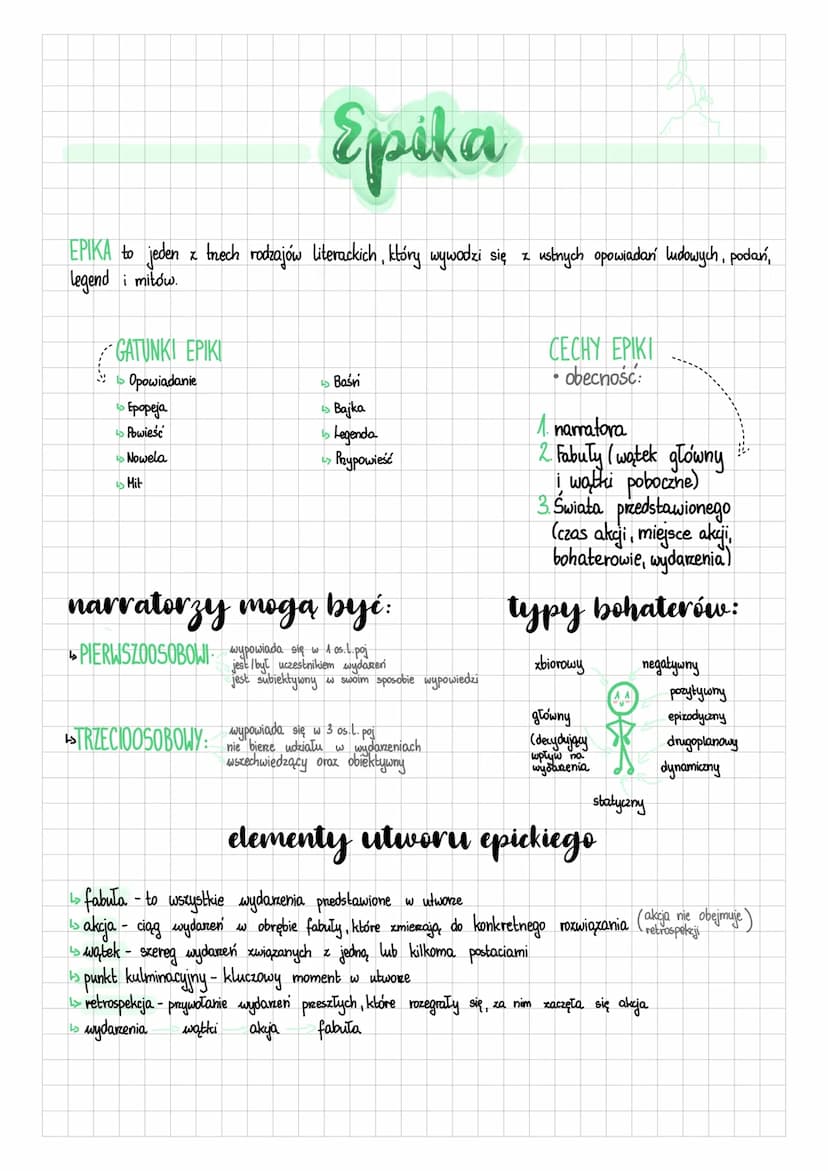 Epika
EPIKA to jeden z trzech rodzajów literackich, który wywodzi się z ustnych opowiadań ludowych, podań,
legend i mitów.
GATUNKI EPIKI
Opowiadanie
Epopeja
Powieść
Nowela
Mit
Baśń
Bajka
Legenda
Przypowieść
CECHY EPIKI
• obecność:
1. narratora
2. Fabuły (wątek główny
i wątki poboczne)
3. Świata przedstawionego
(czas akcji, miejsce akcji,
bohaterowie, wydarzenia)
narratorzy mogą być:
PIERWSZOOSOBOWI:
wypowiada się w 1 os.l.poj
jest/był uczestnikiem wydarzeń
jest subiektywny w swoim sposobie wypowiedzi
TRZECIOOSOBOWY:
wypowiada się w 3 os.l. poj
nie bierze udziału w wydarzeniach
wszechwiedzący oraz obiektywny
typy bohaterów:
zbiorowy
negatywny
pozytywny
główny
(decydujący
wpływ na
wydarzenia
epizodyczny
drugoplanowy
dynamiczny
statyczny
elementy utworu epickiego
fabuła - to wszystkie wydarzenia przedstawione w utworze
akcja - ciąg wydarzeń w obrębie fabuły, które zmierzają do konkretnego rozwiązania (akcja nie obejmuje retrospekcji)
wątek - szereg wydarzeń związanych z jedną lub kilkoma postaciami
punkt kulminacyjny - kluczowy moment w utworze
retrospekcja - przywołanie wydarzeń przeszłych, które rozegrały się, za nim zaczęła się akcja
wydarzenia → wątki → akcja → fabuła